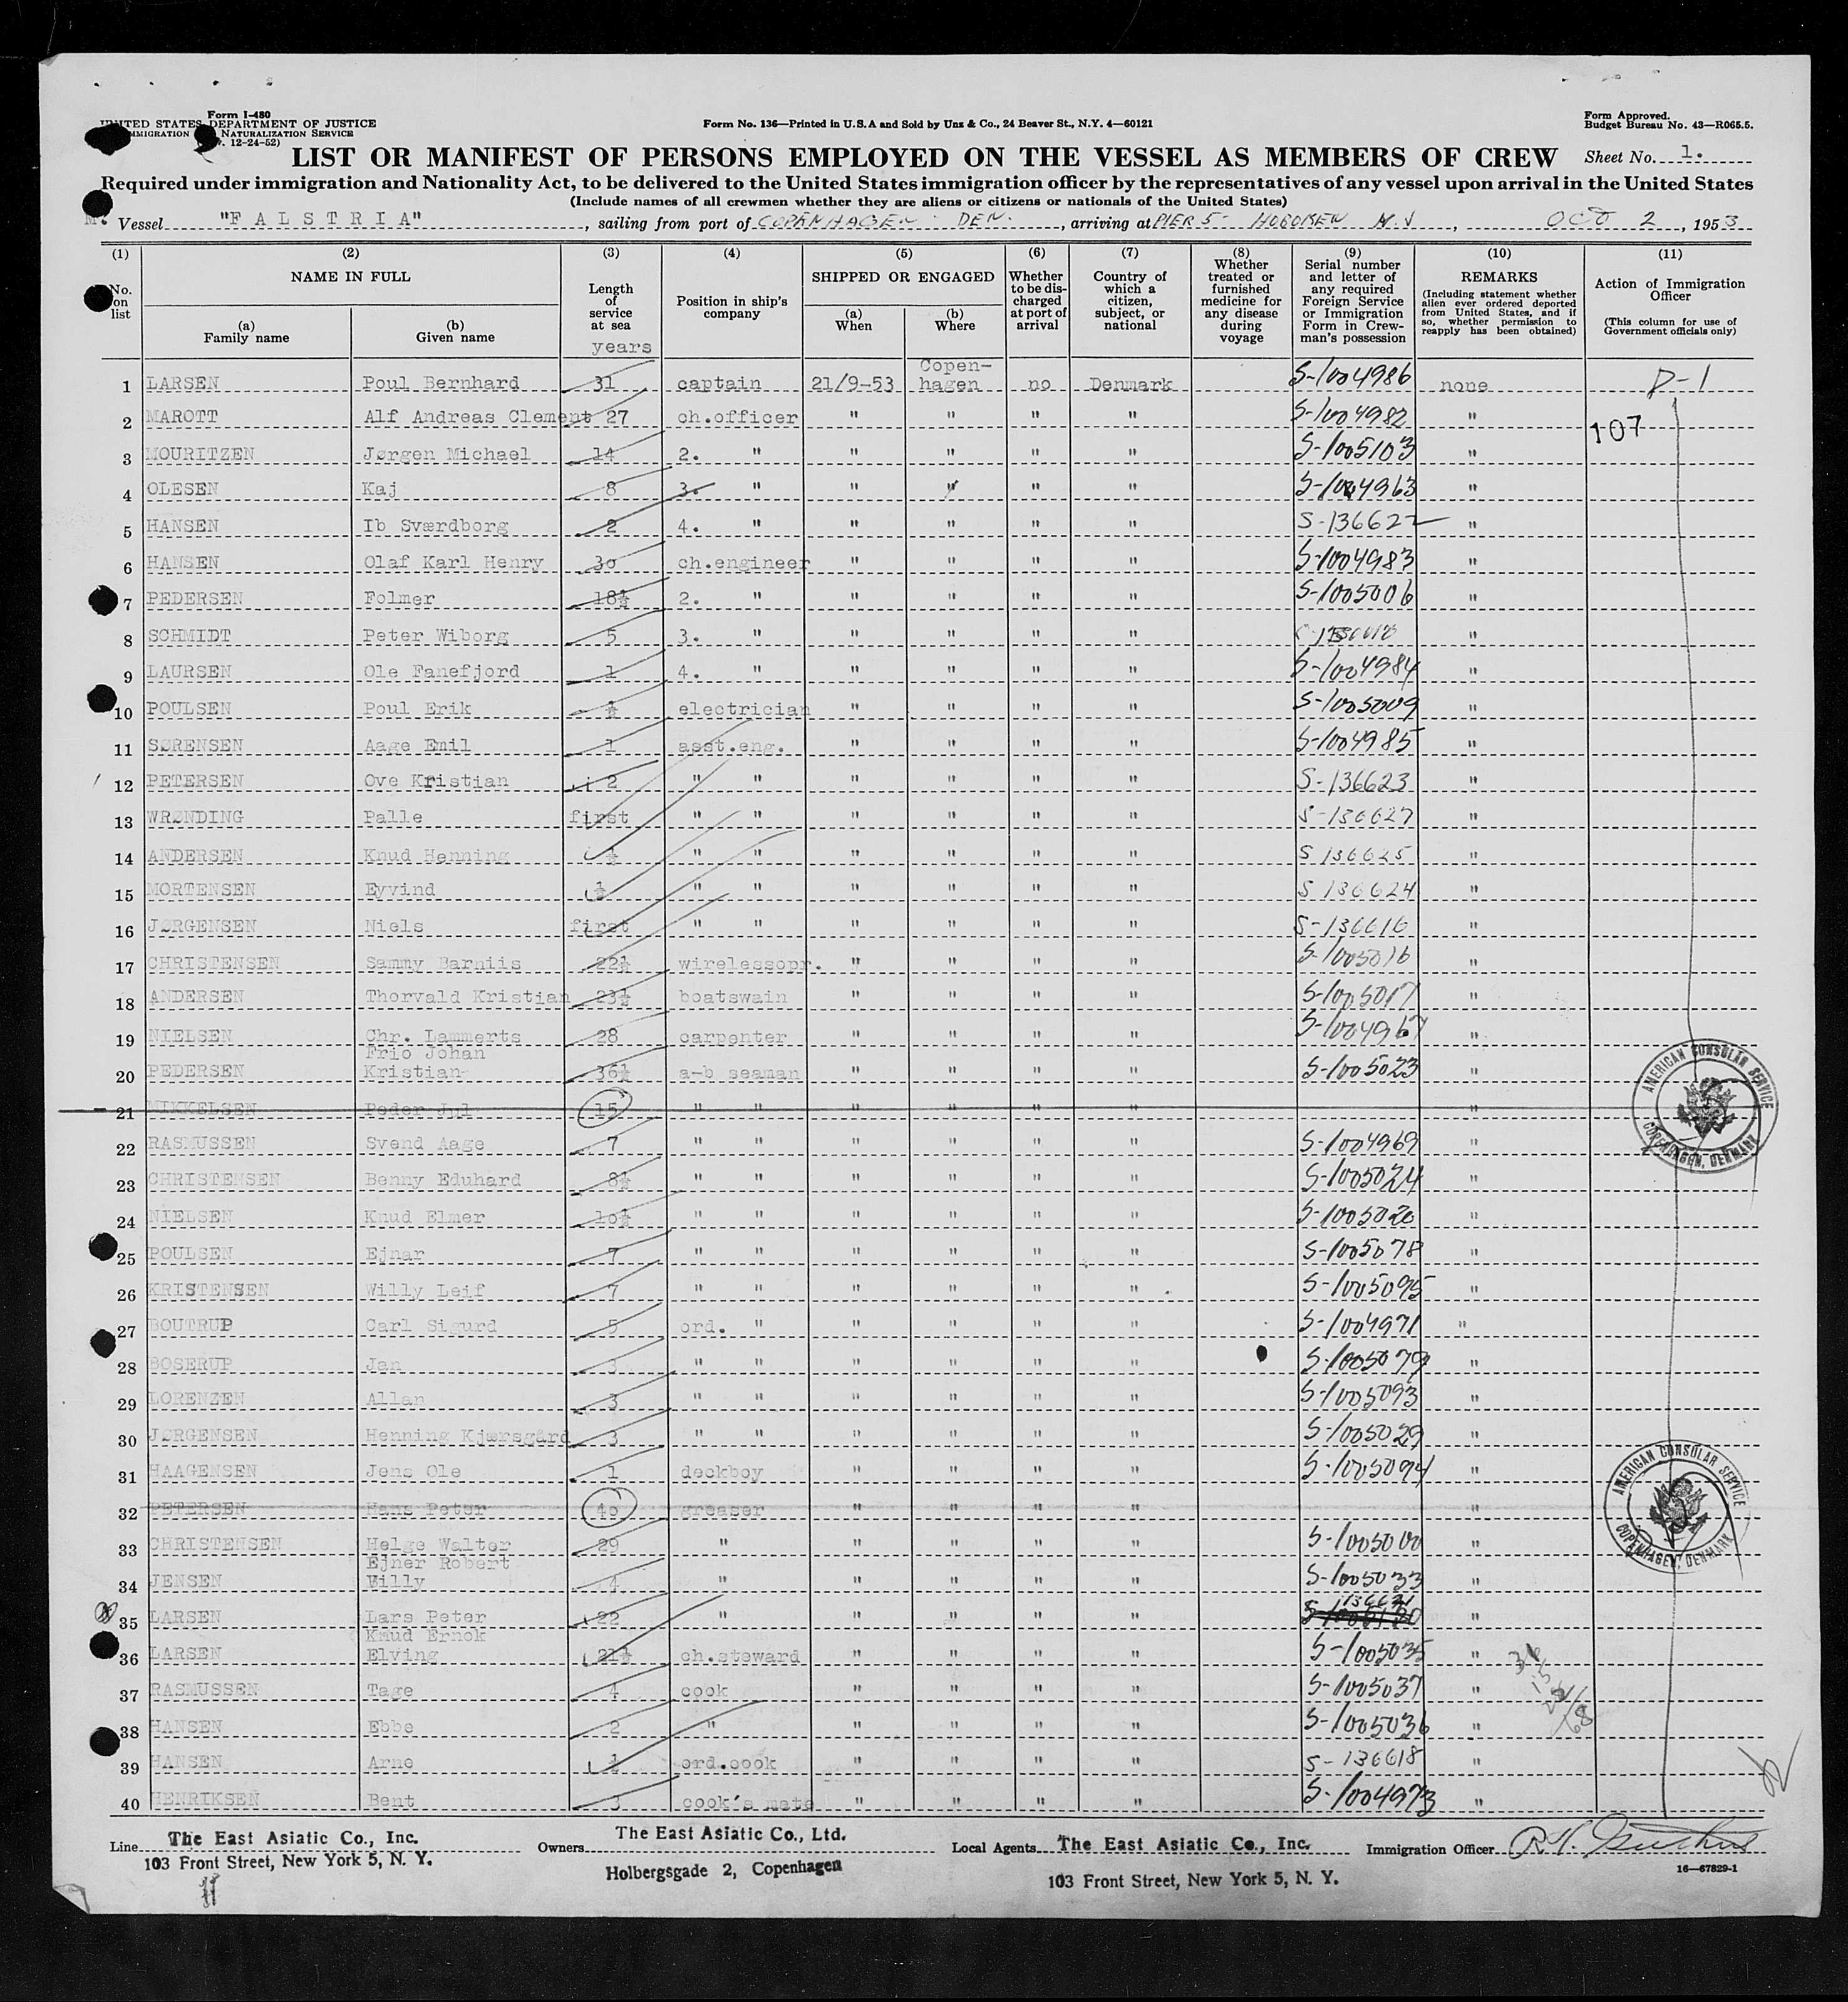 Form I-480
UNITED STATES DEPARTMENT OF JUSTICE
IMMIGRATION NATURALIZATION SERVICE
12-24-52)
Form No. 136—Printed in U.S.A and Sold by Unz & Co., 24 Beaver St., N.Y. 4—60121
Form Approved.
Budget Bureau No. 43—R065.5.
LIST OR MANIFEST OF PERSONS EMPLOYED ON THE VESSEL AS MEMBERS OF CREW
Sheet No. 1.
Required under immigration and Nationality Act, to be delivered to the United States immigration officer by the representatives of any vessel upon arrival in the United States
(Include names of all crewmen whether they are aliens or citizens or nationals of the United States)
M. Vessel "F A L S T R I A", sailing from port of COPENHAGEN - DEN., arriving at PIER 5 - HOBOKEN N.J, OCT 2, 1953
(1) (2) (3) (4) (5) (6) (7) (8) (9) (10) (11)
No. on list
NAME IN FULL
(a) Family name
(b) Given name
Length of service at sea
years
Position in ship's company
SHIPPED OR ENGAGED
(a) When
(b) Where
Whether to be discharged at port of arrival
Country of which a citizen, subject, or national
Whether treated or furnished medicine for any disease during voyage
Serial number and letter of any required Foreign Service or Immigration Form in Crewman's possession
REMARKS
(Including statement whether alien ever ordered deported from United States, and if so, whether permission to reapply has been obtained)
Action of Immigration Officer
(This column for use of Government officials only)
1 LARSEN Poul Bernhard 31 captain 21/9-53 Copenhagen no Denmark S-1004986 none D-1
2 MAROTT Alf Andreas Clement 27 ch.officer " " " " S-1004982 " 107
3 MOURITZEN Jørgen Michael 14 2. " " " " " S-1005103 "
4 OLESEN Kaj 8 3. " " " " " S-1004963 "
5 HANSEN Ib Sværdborg 2 4. " " " " " S-136622 "
6 HANSEN Olaf Karl Henry 3o ch.engineer " " " " S-1004983 "
7 PEDERSEN Folmer 18½ 2. " " " " " S-1005006 "
8 SCHMIDT Peter Wiborg 5 3. " " " " " "
9 LAURSEN Ole Fanefjord 1 4. " " " " " S-1004984 "
10 POULSEN Poul Erik ½ electrician " " " " S-1005009 "
11 SØRENSEN Aage Emil 1 asst.eng. " " " " S-1004985 "
12 PETERSEN Ove Kristian 2 " " " " " " S-136623 "
13 WRØNDING Palle first " " " " " " S-136627 "
14 ANDERSEN Knud Henning ½ " " " " " " S 136625 "
15 MORTENSEN Eyvind ½ " " " " " " S 136624 "
16 JØRGENSEN Niels first " " " " " " S-136616 "
17 CHRISTENSEN Sammy Barniis 22½ wirelessopr. " " " " S-1005016 "
18 ANDERSEN Thorvald Kristian 23½ boatswain " " " " S-1005017 "
19 NIELSEN Chr. Lammerts 28 carpenter " " " " S-1004967 "
20 PEDERSEN Frio Johan Kristian 36½ a-b seaman " " " " S-1005023 "
21 MIKKELSEN Peder Jul 15 " " " " " " "
22 RASMUSSEN Svend Aage 7 " " " " " " S-1004969 "
23 CHRISTENSEN Benny Eduhard 8½ " " " " " " S-1005024 "
24 NIELSEN Knud Elmer 1o½ " " " " " " S-1005026 "
25 POULSEN Ejnar 7 " " " " " " S-1005078 "
26 KRISTENSEN Willy Leif 7 " " " " " " S-1005095 "
27 BOUTRUP Carl Sigurd 5 ord. " " " " " S-1004971 "
28 BOSERUP Jan 3 " " " " " " S-1005079 "
29 LORENZEN Allan 3 " " " " " " S-1005093 "
30 JØRGENSEN Henning Kjærsgård 3 " " " " " " S-1005029 "
31 HAAGENSEN Jens Ole 1 deckboy " " " " S-1005094 "
32 PETERSEN Hans Peter 4o greaser " " " " "
33 CHRISTENSEN Helge Walter 29 " " " " " S-1005000 "
34 JENSEN Ejner Robert Willy 4 " " " " " S-1005033 "
35 LARSEN Lars Peter 22 " " " " " 136621 "
36 LARSEN Knud Ernok Elving 21½ ch.steward " " " " S-1005035 "
37 RASMUSSEN Tage 4 cook " " " " S-1005037 "
38 HANSEN Ebbe 2 " " " " " S-1005036 "
39 HANSEN Arne ½ ord.cook " " " " S-136618 "
40 HENRIKSEN Bent 3 cook's mate " " " " S-1004973 "
AMERICAN CONSULAR SERVICE
COPENHAGEN, DENMARK
AMERICAN CONSULAR SERVICE
COPENHAGEN, DENMARK
Line The East Asiatic Co., Inc.
103 Front Street, New York 5, N. Y.
Owners The East Asiatic Co., Ltd.
Holbergsgade 2, Copenhagen
Local Agents The East Asiatic Co., Inc.
103 Front Street, New York 5, N. Y.
Immigration Officer
16—67829-1